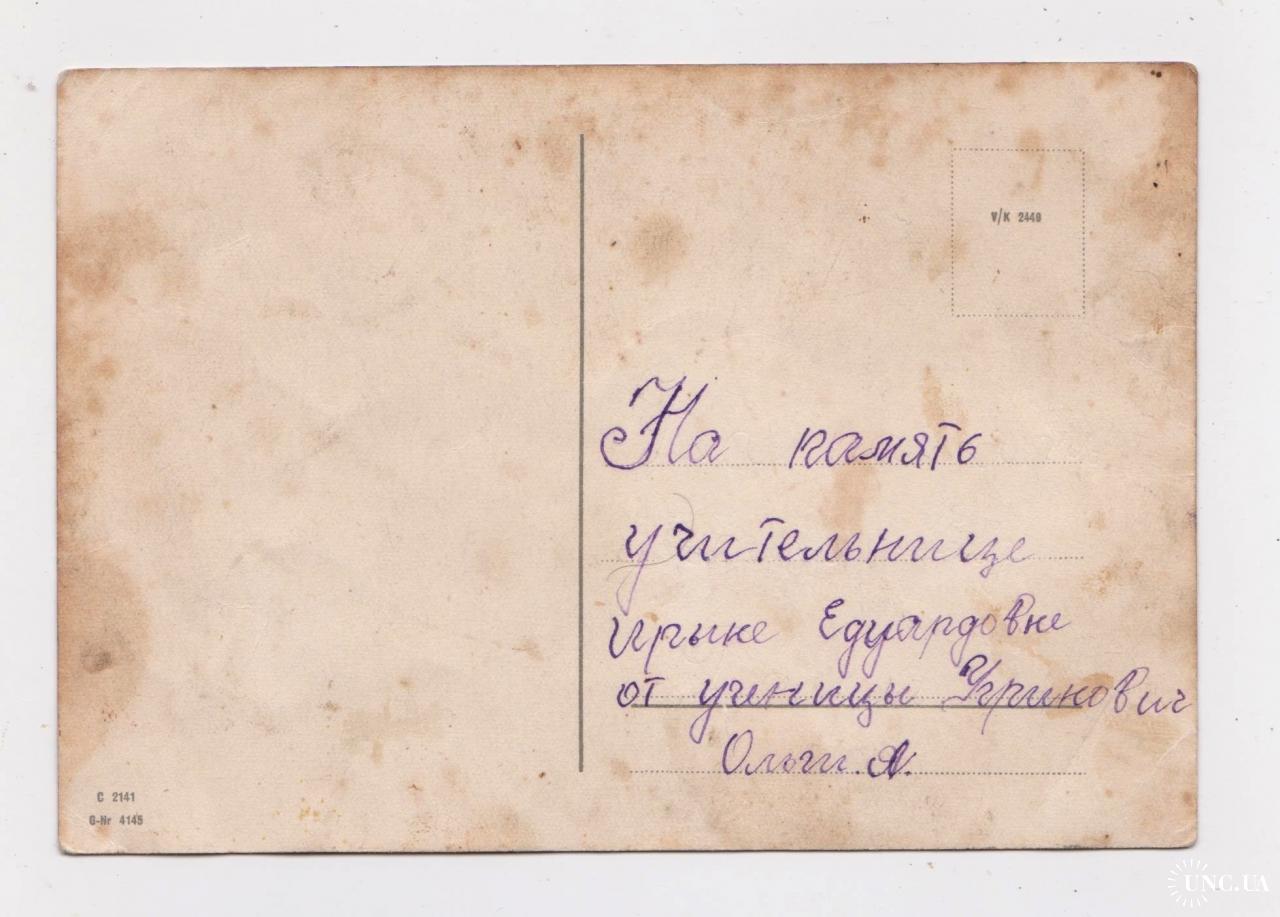 V/K 2440
На память
учительнице
Ирыне Едуардовне
от ученицы Угринович
Ольги. Я.
C 2141
G-Nr 4145
UNC.UA